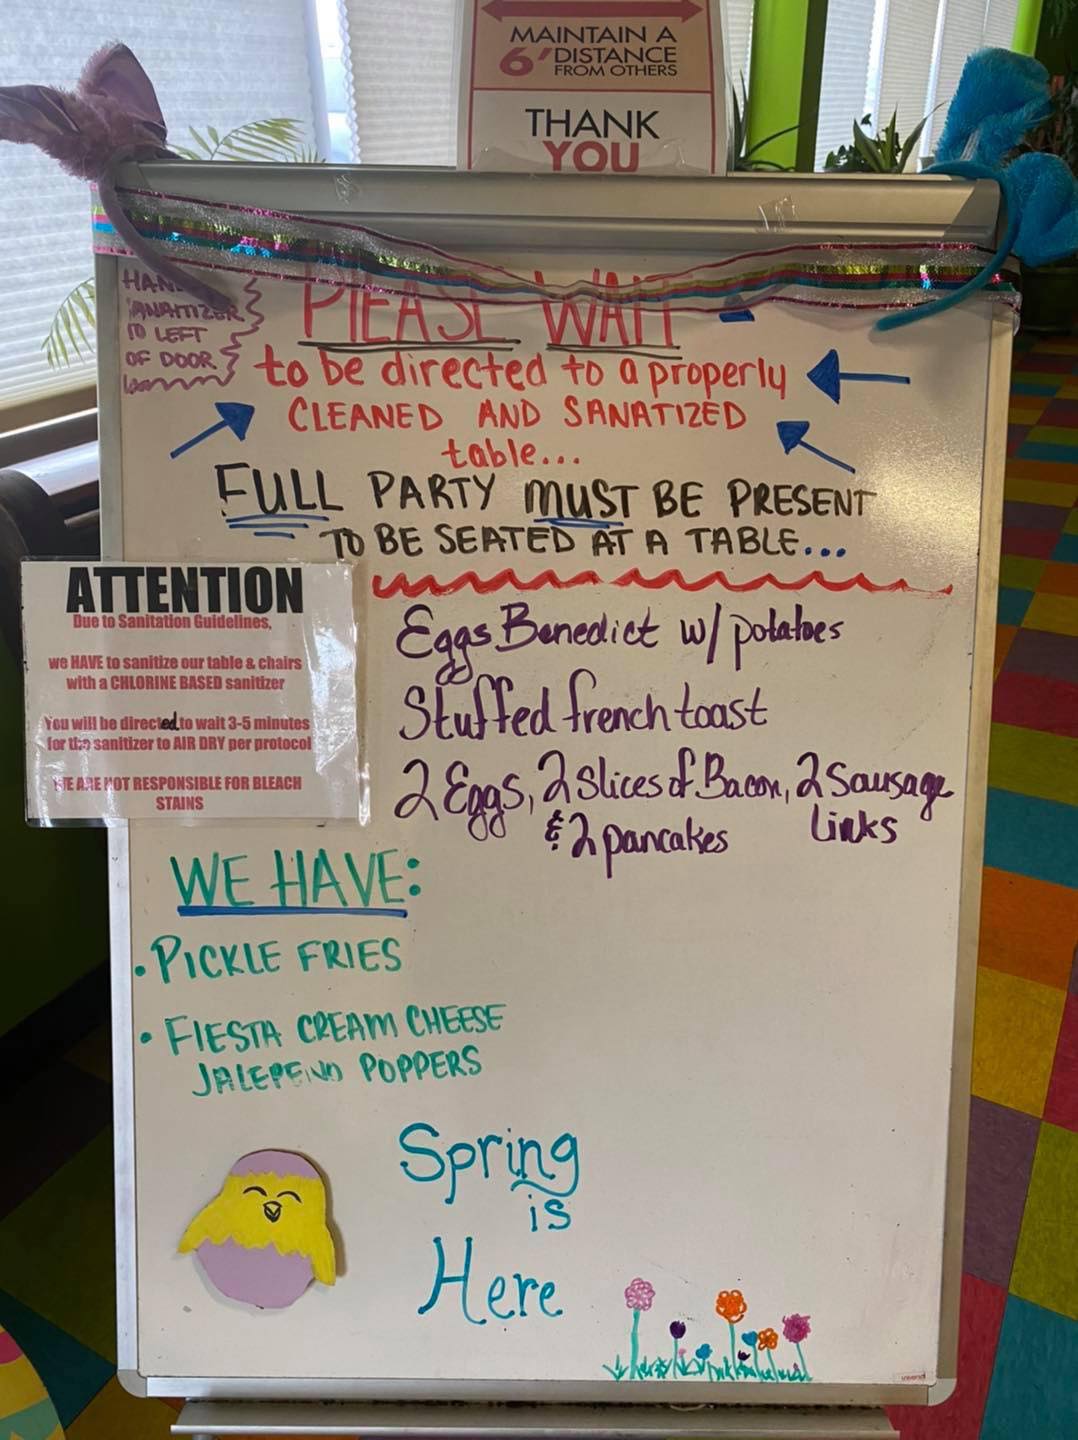 MAINTAIN A
6' DISTANCE
FROM OTHERS
THANK
YOU
HAND
SANATIZER
TO LEFT
OF DOOR
PLEASE WAIT
to be directed to a properly
CLEANED AND SANATIZED
table...
FULL PARTY MUST BE PRESENT
TO BE SEATED AT A TABLE...
ATTENTION
Due to Sanitation Guidelines,
we HAVE to sanitize our table & chairs
with a CHLORINE BASED sanitizer
You will be directed to wait 3-5 minutes
for the sanitizer to AIR DRY per protocol
WE ARE NOT RESPONSIBLE FOR BLEACH
STAINS
Eggs Benedict w/ potatoes
Stuffed french toast
2 Eggs, 2 slices of Bacon, 2 Sausage
& 2 pancakes links
WE HAVE:
• PICKLE FRIES
• FIESTA CREAM CHEESE
JALEPENO POPPERS
Spring
is
Here